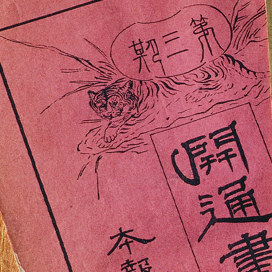 第三期
開通畫
本報